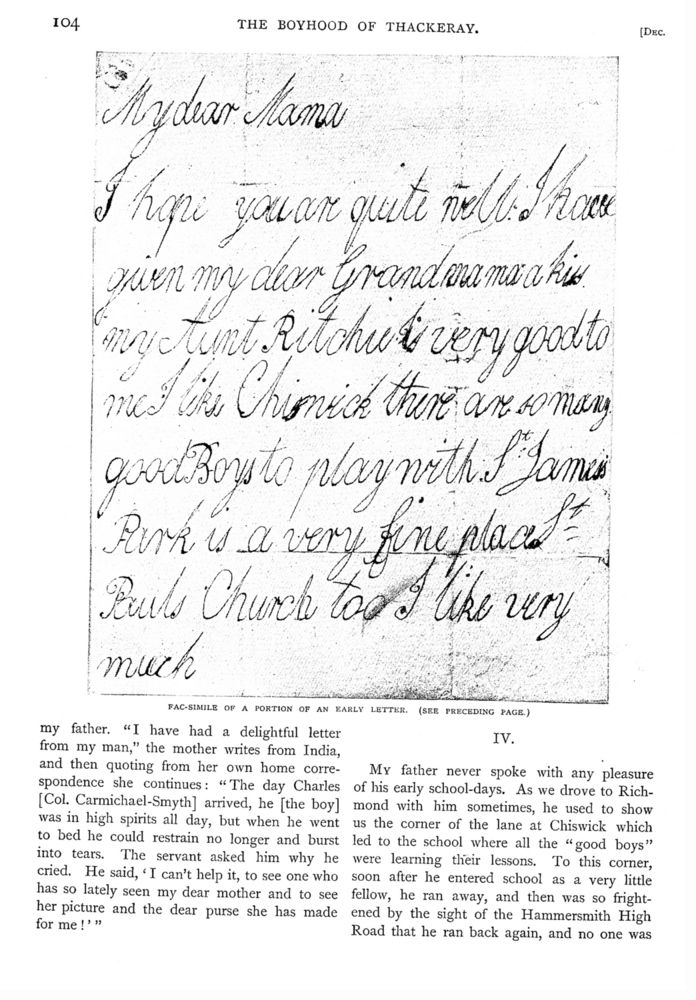 104
THE BOYHOOD OF THACKERAY.
[DEC.
My dear Mama
I hope you are quite well. I have
given my dear Grandmama a kiss
my Aunt Ritchie is very good to
me I like Chiswick there are so many
good Boys to play with. St James's
Park is a very fine place St
Pauls Church too I like very
much
FAC-SIMILE OF A PORTION OF AN EARLY LETTER. (SEE PRECEDING PAGE.)
my father. "I have had a delightful letter
from my man," the mother writes from India,
and then quoting from her own home corre-
spondence she continues: "The day Charles
[Col. Carmichael-Smyth] arrived, he [the boy]
was in high spirits all day, but when he went
to bed he could restrain no longer and burst
into tears. The servant asked him why he
cried. He said, 'I can't help it, to see one who
has so lately seen my dear mother and to see
her picture and the dear purse she has made
for me!'"
IV.
MY father never spoke with any pleasure
of his early school-days. As we drove to Rich-
mond with him sometimes, he used to show
us the corner of the lane at Chiswick which
led to the school where all the "good boys"
were learning their lessons. To this corner,
soon after he entered school as a very little
fellow, he ran away, and then was so fright-
ened by the sight of the Hammersmith High
Road that he ran back again, and no one was